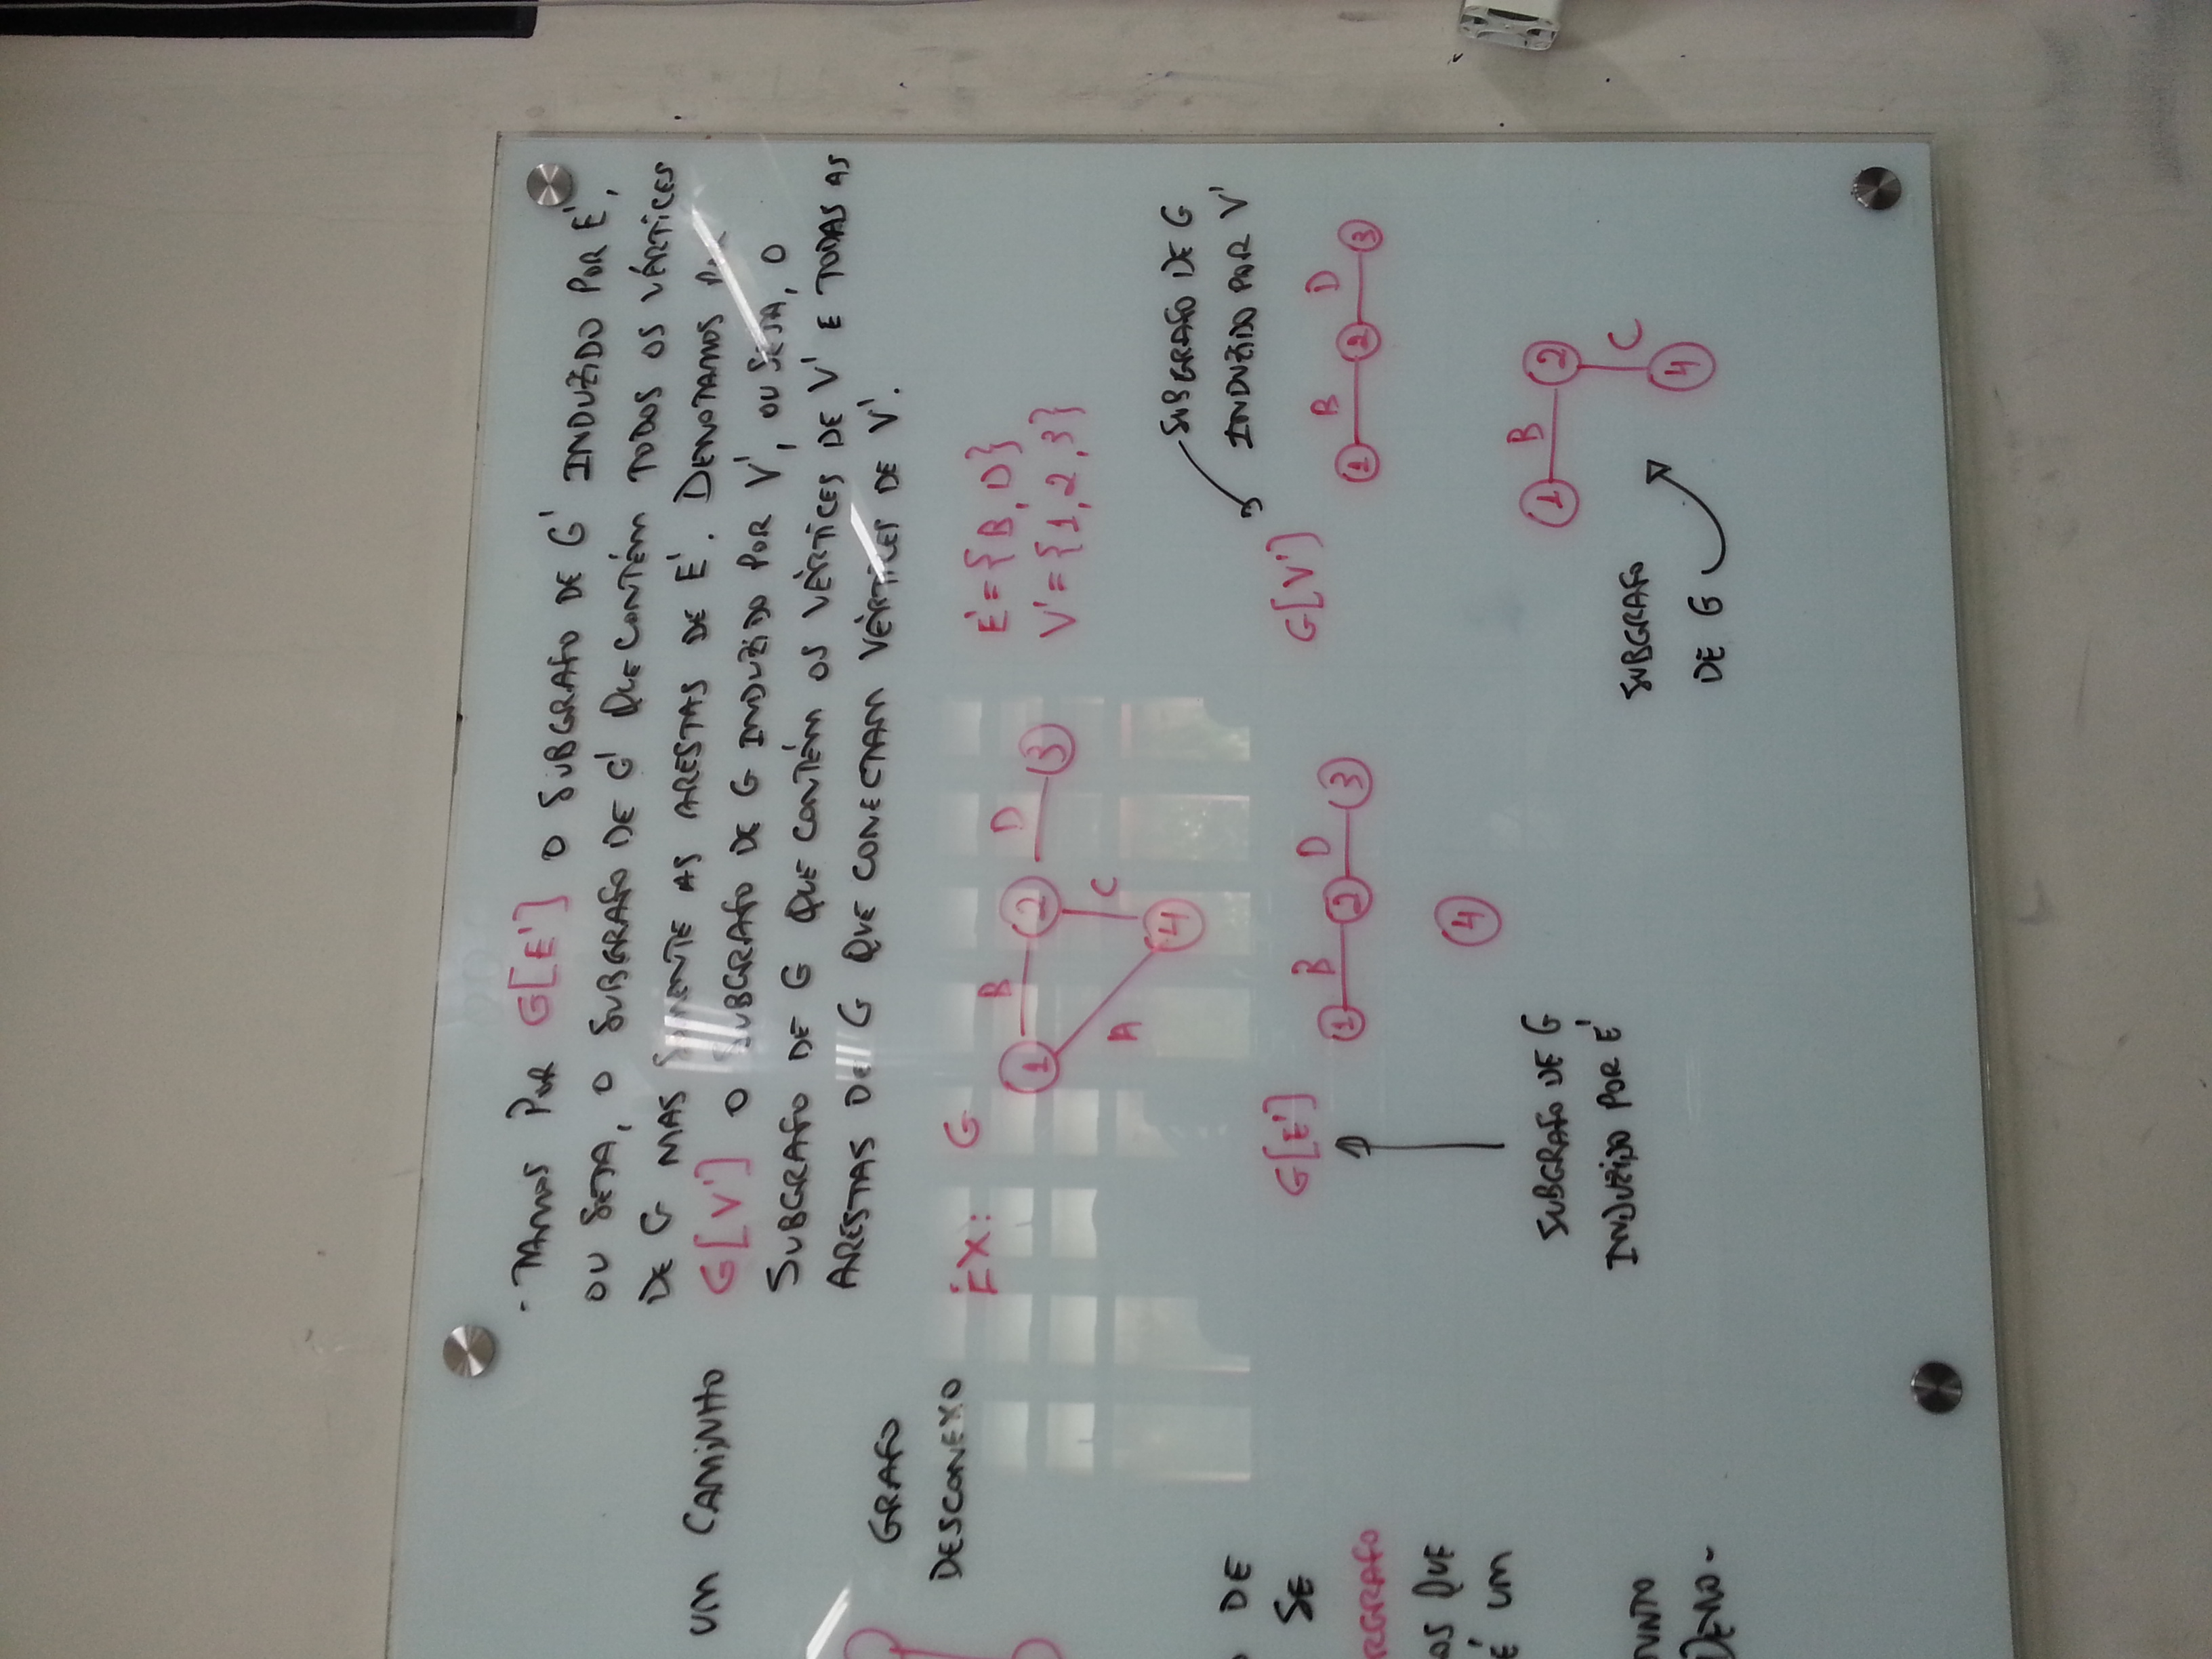 UM CAMINHO
GRAFO
DESCONEXO
DE
SE
RGRAFO
OS QUE
É UM
JUNTO
DENO-
-TAMOS POR G[E'] O SUBGRAFO DE G' INDUZIDO POR E',
OU SEJA, O SUBGRAFO DE G' QUE CONTÉM TODOS OS VÉRTICES
DE G MAS SOMENTE AS ARESTAS DE E'. DENOTAMOS POR
G[V'] O SUBGRAFO DE G INDUZIDO POR V', OU SEJA, O
SUBGRAFO DE G QUE CONTÉM OS VÉRTICES DE V' E TODAS AS
ARESTAS DE G QUE CONECTAM VÉRTICES DE V'.
EX: G
1 B 2 D 3
A C
4
E'={B, D}
V'={1,2,3}
G[E']
1 B 2 D 3
4
SUBGRAFO DE G
INDUZIDO POR E'
SUBGRAFO DE G
INDUZIDO POR V'
G[V']
1 B 2 D 3
1 B 2
C
4
SUBGRAFO
DE G